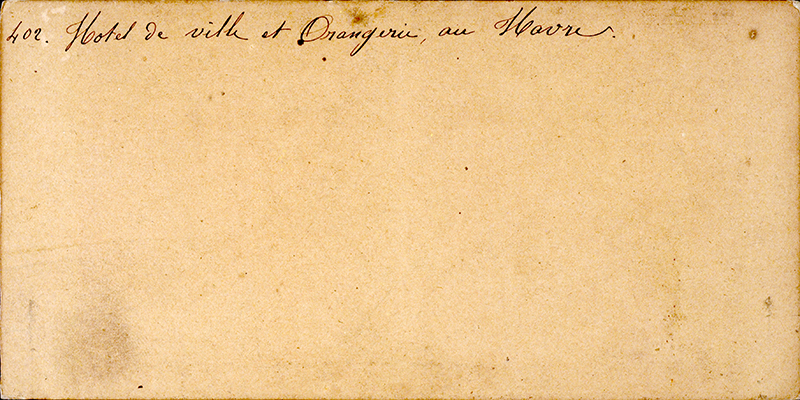 402. Hotel de ville et Orangerie, au Havre.